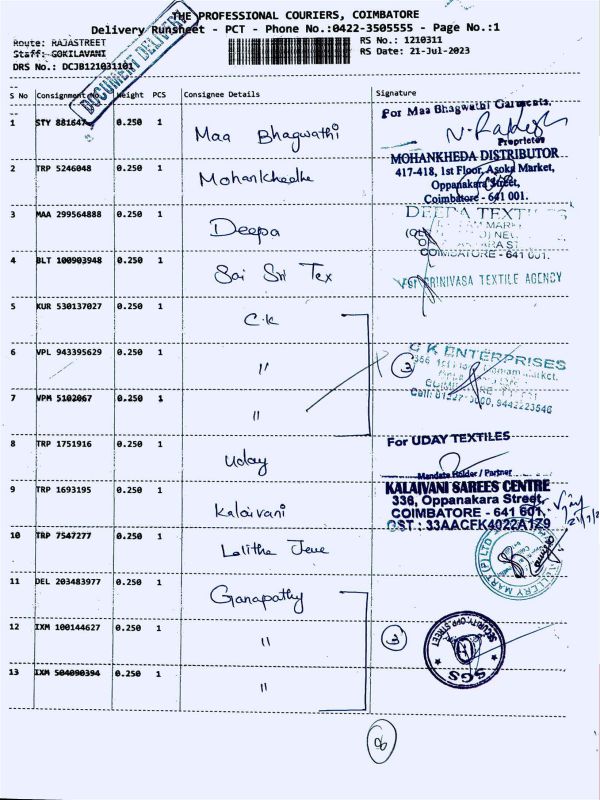 THE PROFESSIONAL COURIERS, COIMBATORE
Delivery Runsheet - PCT - Phone No.:0422-3505555 - Page No.:1
Route: RAJASTREET
RS No.: 1210311
Staff: GOKILAVANI
RS Date: 21-Jul-2023
DRS No.: DCJB121031101
DOCUMENT DELIVERY
S No Consignment No. Weight PCS Consignee Details Signature
1 STY 0.250 1 Maa Bhagwathi
For Maa Bhagwathi Garments,
Proprietor
2 TRP 5246048 0.250 1 Mohankhedha
MOHANKHEDA DISTRIBUTOR
417-418, 1st Floor, Asoka Market,
Oppanakara Street,
Coimbatore - 641 001.
3 MAA 299564888 0.250 1 Deepa
DEEPA TEXTILES
COIMBATORE - 641 001.
4 BLT 100903948 0.250 1 Sai Sri Tex
SRINIVASA TEXTILE AGENCY
5 KUR 530137027 0.250 1 C.K
6 VPL 943395629 0.250 1 "
3
C K ENTERPRISES
7 VPM 5102067 0.250 1 "
8 TRP 1751916 0.250 1 Uday
For UDAY TEXTILES
Mandate Holder / Partner
9 TRP 1693195 0.250 1 Kalaivani
KALAIVANI SAREES CENTRE
336, Oppanakara Street,
COIMBATORE - 641 001,
GST : 33AACFK4022A1Z9
10 TRP 7547277 0.250 1 Lalitha Jewe
11 DEL 203483977 0.250 1 Ganapathy
12 IXM 100144627 0.250 1 "
3
SECURITY OPP.STREET
SGS
13 IXM 504090394 0.250 1 "